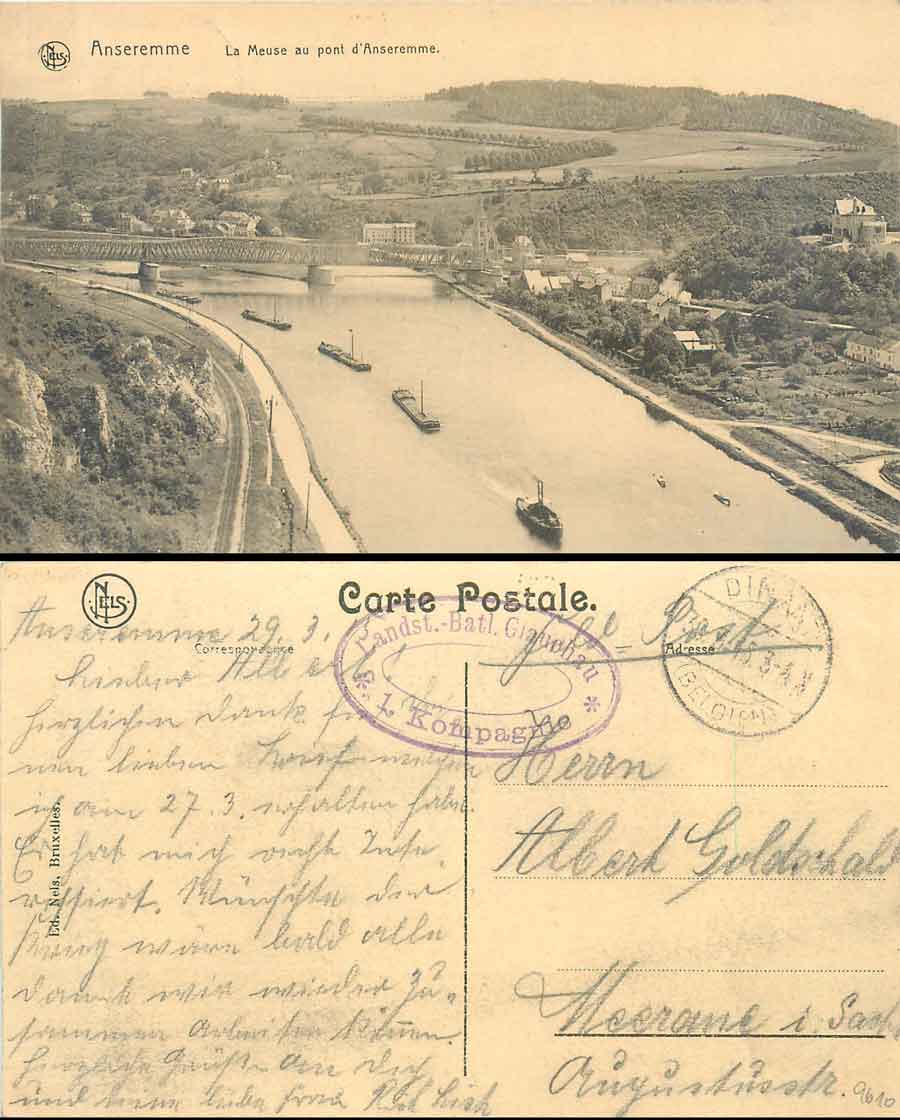 NELS
Anseremme La Meuse au pont d'Anseremme.
NELS
Carte Postale.
Correspondance
Adresse
Ed. Nels, Bruxelles.
Landst.-Batl. Glauchau
* 1. Kompagnie *
DINANT
3-4 N
(BELGIEN)
Feld-Post
Anseremme 29. 3.
Lieber Albert!
Herzlichen Dank für
nen lieben Brief welchen
ich am 27. 3. erhalten habe.
Er hat mich recht Inte,
ressiert. Wünschte der
Krieg wäre bald alle
damit wir wieder zu,
sammen Arbeiten können.
Herzliche Grüße an Dich
und deine liebe Frau
Herrn
Albert Goldschald
Meerane i. Sach
Augustusstr.